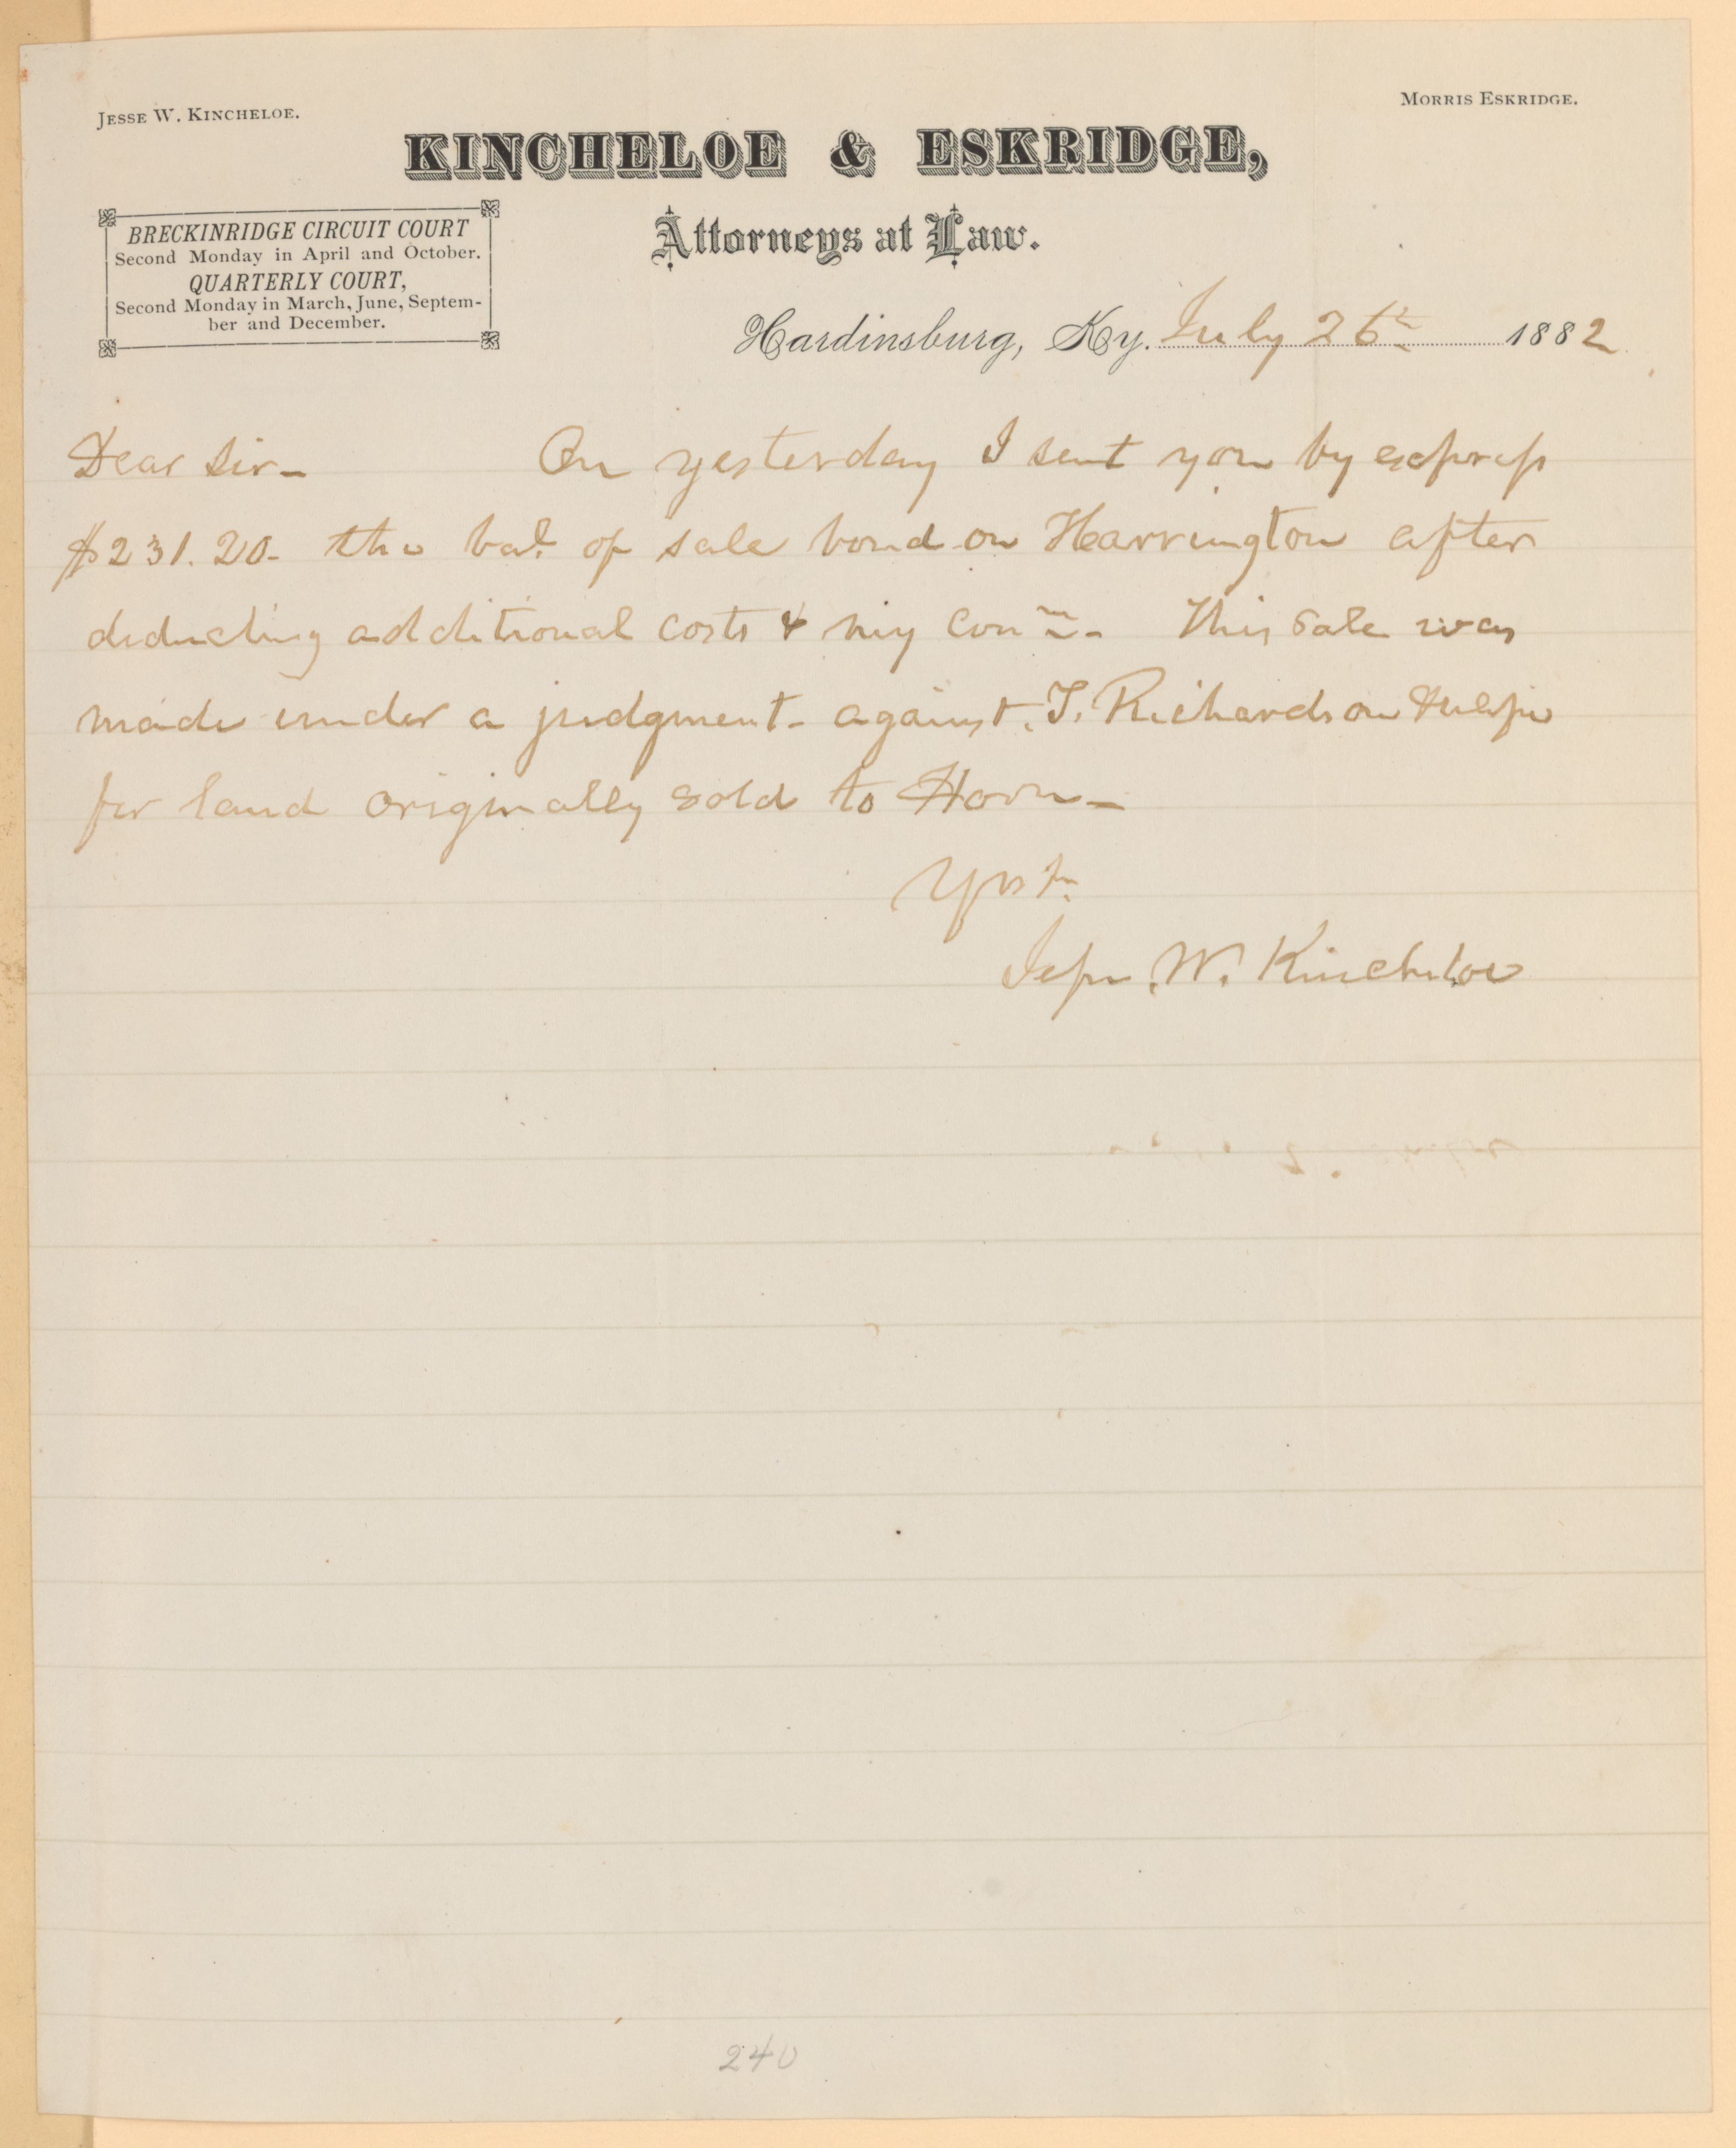 JESSE W. KINCHELOE.
MORRIS ESKRIDGE.
KINCHELOE & ESKRIDGE,
Attorneys at Law.
BRECKINRIDGE CIRCUIT COURT
Second Monday in April and October.
QUARTERLY COURT,
Second Monday in March, June, Septem-
ber and December.
Hardinsburg, Ky. July 26th 1882
Dear Sir- On yesterday I sent you by express
$231.20- the bal. of sale bond on Harrington after
deducting additional costs & my Comn- This sale was
made under a judgment- against. T. Richardson &
for land originally sold to Horn-
Jesse. W. Kincheloe
240